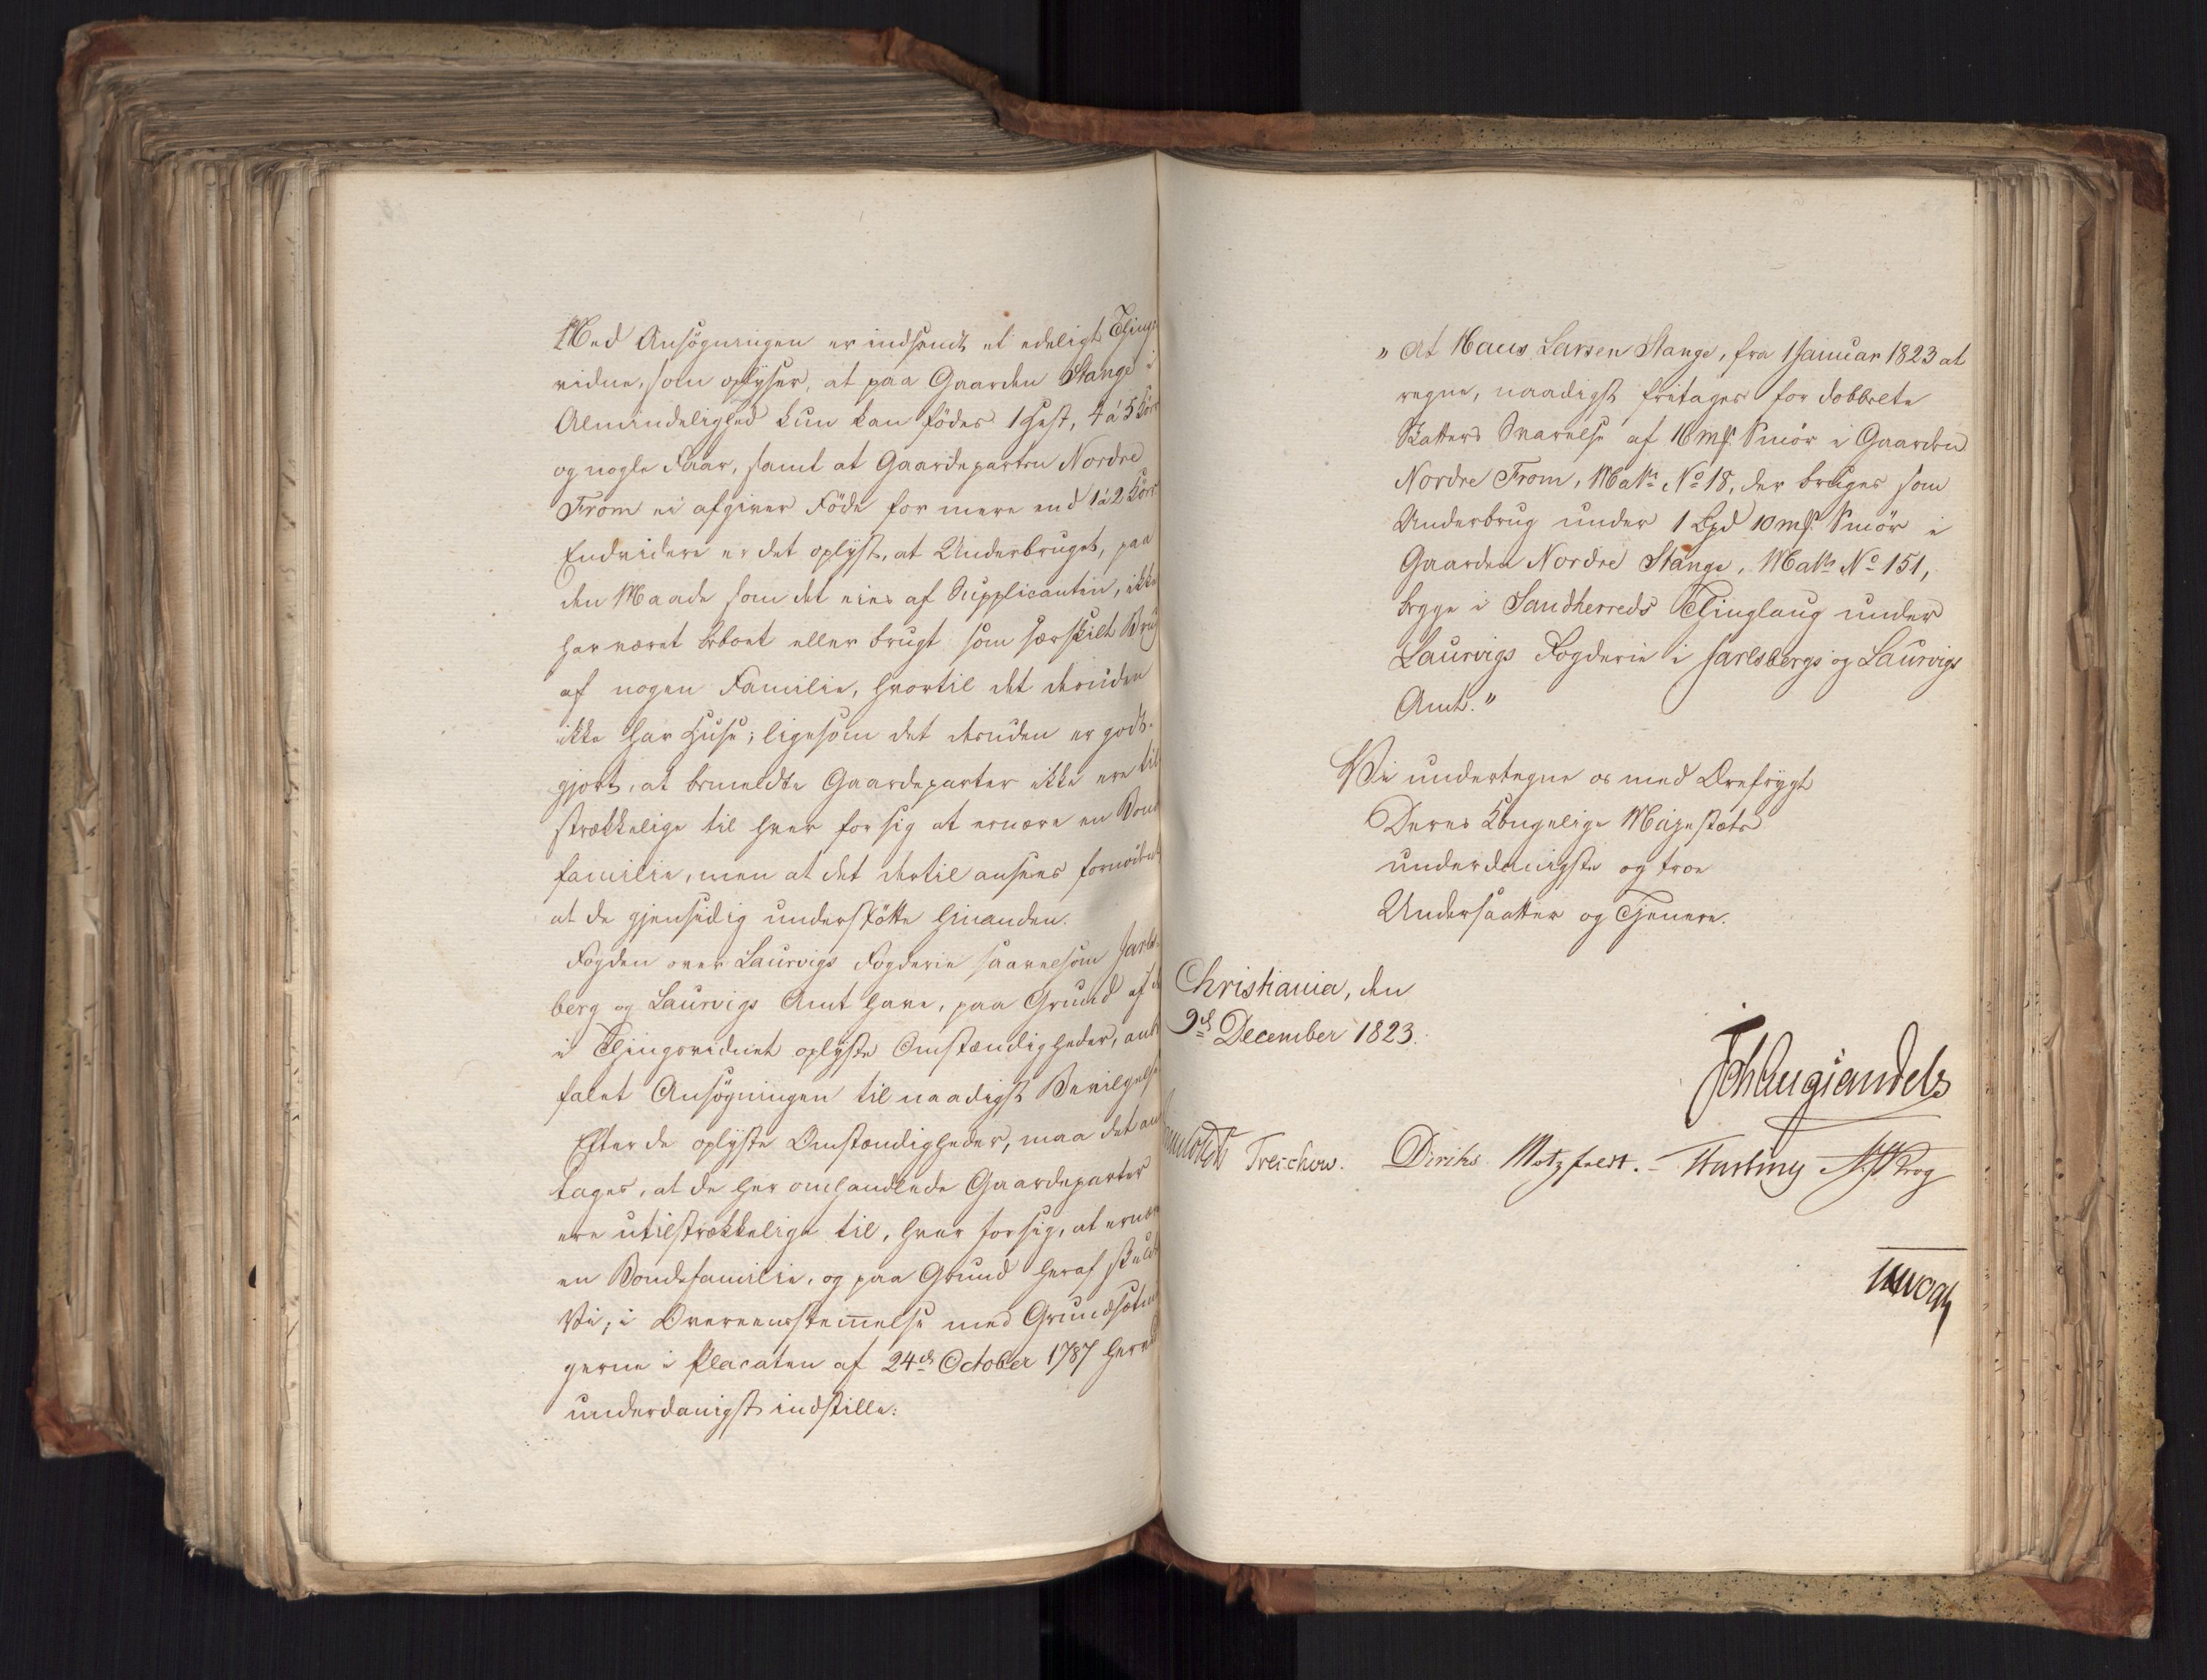 Med Ansøgningen er indsendt et edeligt Things-
vidne, som oplyser, at paa Gaarden Stange i
Almindelighed kun kan fødes 1 Hest, 4 á 5 Kiør
og nogle Faar, samt at Gaardeparten Nordre
From ei afgiver Føde for mere end 1 á 2 Kiør.
Endvidere er det oplyst, at Underbruget, paa
den Maade som det eies af Supplicanten, ikke
har været beboet eller brugt som særskilt Brug
af nogen Familie, hvortil det desuden
ikke har Huse; ligesom det desuden er godt-
gjort, at bemeldte Gaardeparter ikke ere til-
strækkelige til hver for sig at ernære en Bonde
familie, men at det dertil ansees fornødent
at de gjensidig understøtte hinanden.
Fogden over Laurvigs Fogderie saavelsom Jarls-
berg og Laurvigs Amt have, paa Grund af de
i Thingsvidnet oplyste Omstændigheder, anbe
falet Ansøgningen til naadigst Bevilgelse
Efter de oplyste Omstændigheder, maa det an
tages, at de her omhandlede Gaardeparter
ere utilstrækkelige til, hver for sig, at ernære
en Bondefamilie, og paa Grund heraf skulde
Vi, i Overeensstemmelse med Grundsætnin
gerne i Placaten af 24de October 1787 herved
underdanigst indstille:
" At Hans Larsen Stange, fra 1 Januar 1823 at
regne, naadigst fritages for dobbelte
Skatters Svarelse af 16 mk Smør i Gaarden
Nordre From, Matr. No 18, der bruges som
Underbrug under 1 Lpd 10 mk Smør i
Gaarden Nordre Stange, Matr. No 151,
begge i Sandherreds Thinglaug under
Laurvigs Fogderie i Jarlsbergs og Laurvigs
Amt."
Vi undertegne os med Ærefrygt
Deres Kongelige Majestæts
underdanigste og troe
Undersaatter og Tjenere.
Christiania, den
9de December 1823.
JohAugSandels
Treschow. Diriks Motzfeldt. Krog